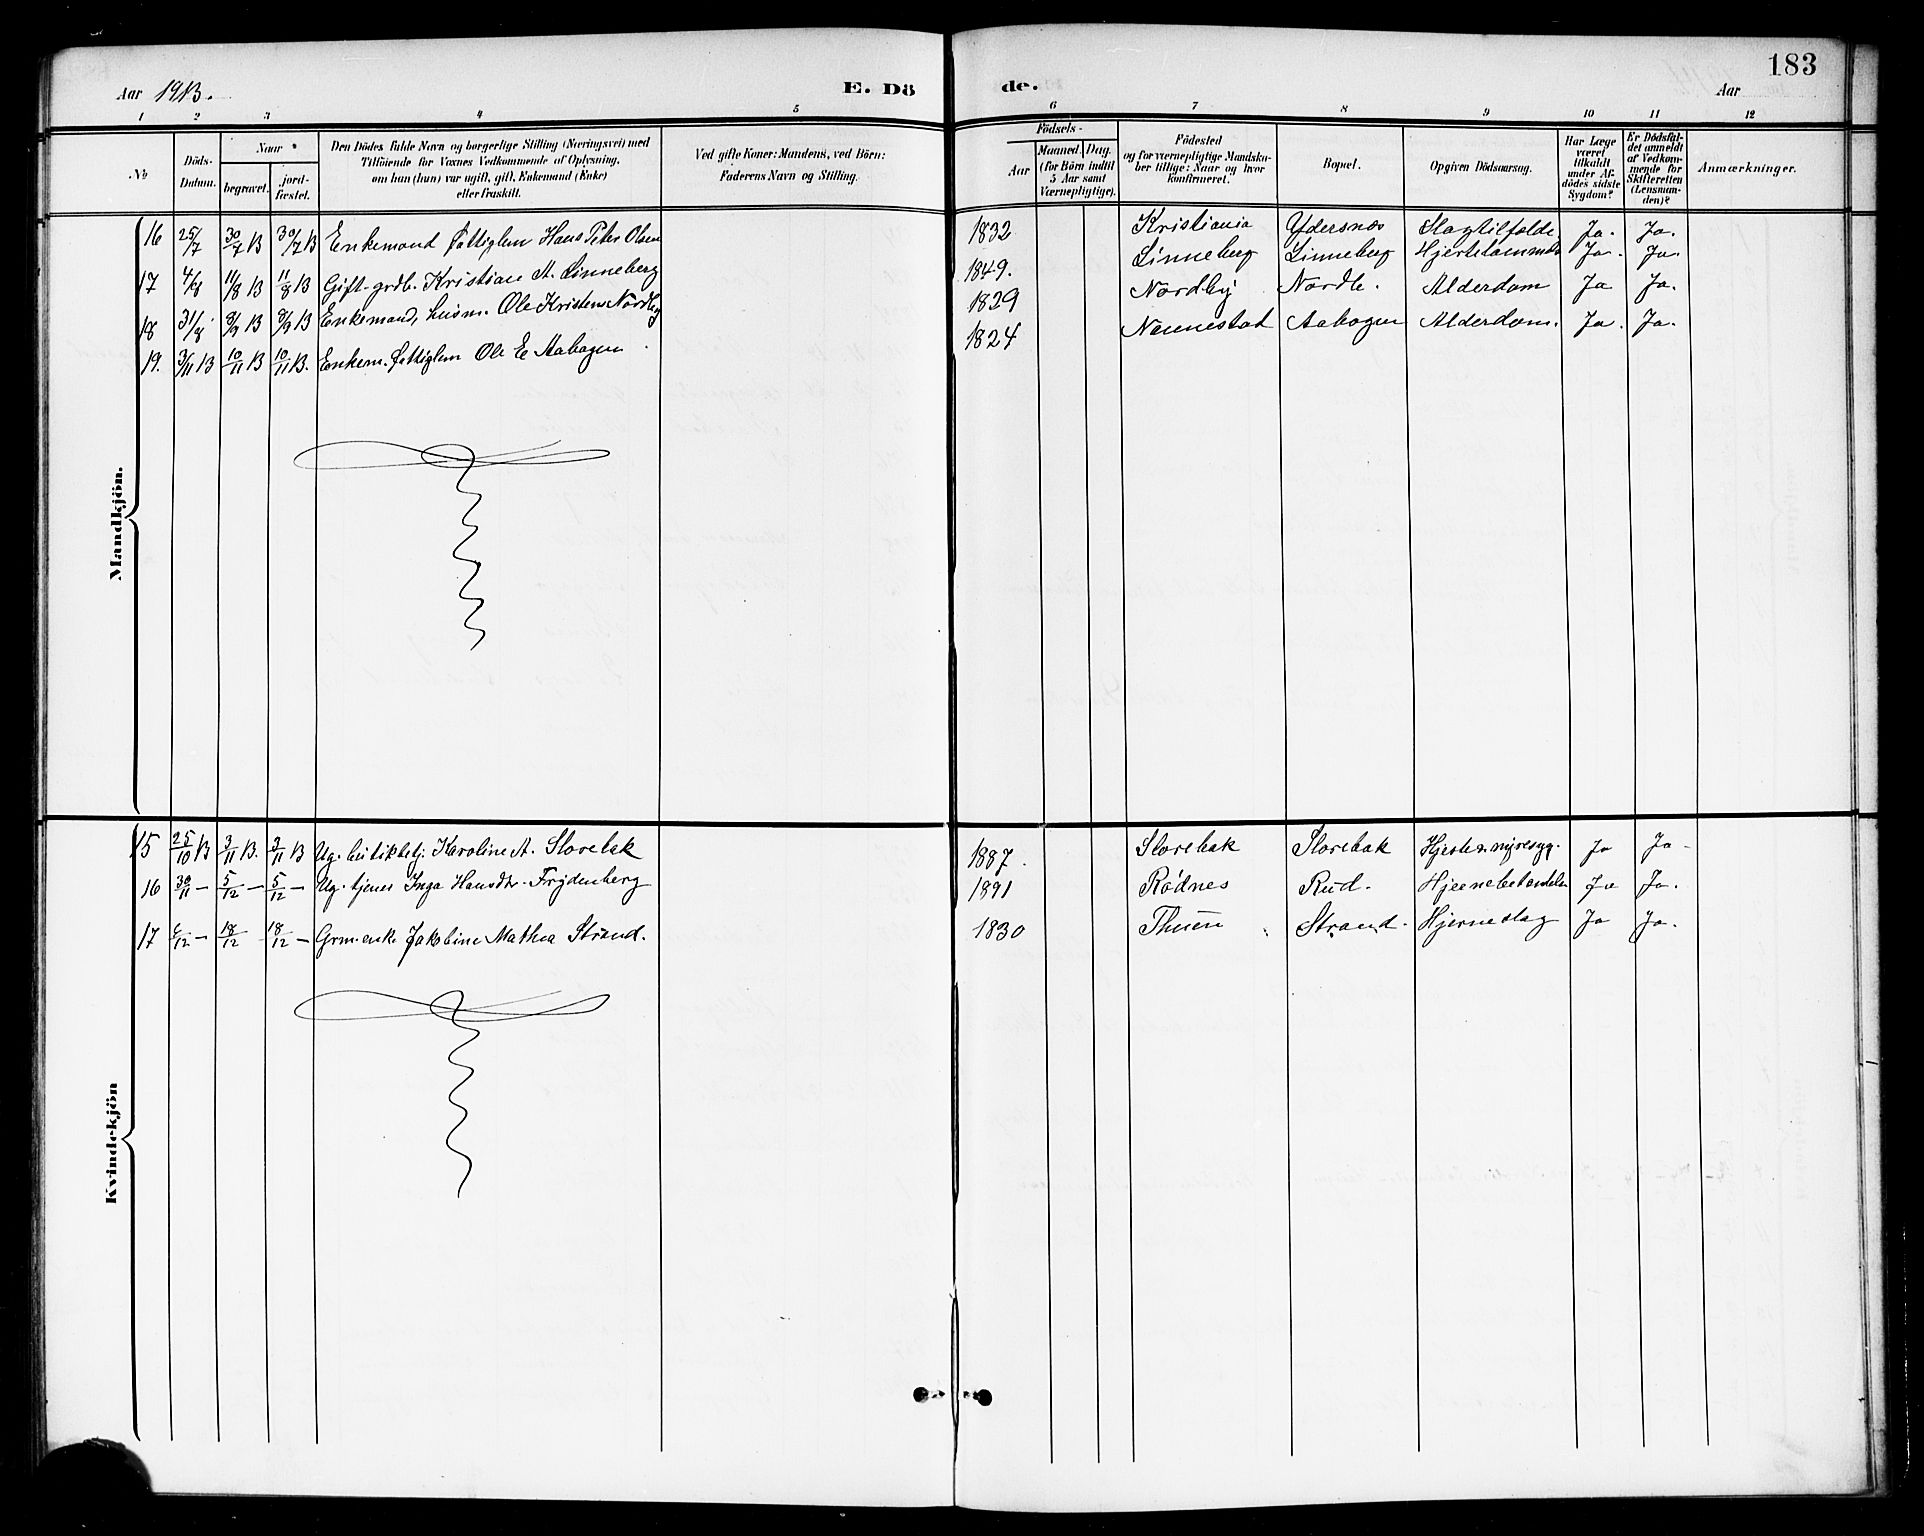 183
Aar 1913.
E. Dö
de.
Aar
1 2 3 4 5 6 7 8 9 10 11 12
No
Döds-Datum.
Naar
begravet.
jord-fæstet.
Den Dödes fulde Navn og borgerlige Stilling (Næringsvei) med
Tilföiende for Voxnes Vedkommende af Oplysning,
om han (hun) var ugift, gift, Enkemand (Enke)
eller fraskilt.
Ved gifte Koner: Mandens, ved Börn:
Faderens Navn og Stilling.
Födsels-
Aar
Maaned. Dag.
(for Börn indtil
5 Aar samt
Værnepligtige).
Födested
og for værnepligtige Mandska-
ber tillige: Naar og hvor
konfirmeret.
Bopæl.
Opgiven Dödsaarsag.
Har Læge
været
tilkaldt
under Af-
dödes sidste
Sygdom?
Er Dödsfal-
det anmeldt
af Vedkom-
mende for
Skifteretten
(Lensman-
den)?
Anmærkninger.
Mandkjön.
16 25/7 30/7 13 30/7 13 Enkemand fattiglem Hans Peter Olsen 1832 Kristiania Ydersnæs Slagtilfælde. Ja. Ja.
17 4/8 11/8 13 11/8 13 Gift grdb. Kristian A. Linneberg 1849. Linneberg Linneberg Ja. Ja.
18 31/8 8/9 13 8/9 13 Enkemand, husm. Ole Kristens Nordby 1829 Nordby Nordb. Alderdom Ja Ja.
19. 3/11 13 10/11 13 10/11 13. Enkem. fattiglem Ole E Aabogen 1824 Nannestad Aabogen Alderdom. Ja. Ja.
Kvindekjön
15 25/10 13 3/11 13. 3/11 13 Ug. butikbetj. Karoline A. Storebak 1887. Storebak Storebak Hjerte & nyresyg. Ja Ja
16 30/11 - 5/12 - 5/12 - Ug. tjener Inga Hansdtr. Frydenberg 1891 Rödnes Rud. Ja Ja.
17 6/12 - 18/12 - 18/12 - Grm. enke Jakobine Mathea Strand. 1830 Thuen Strand. Hjerneslag Ja Ja.